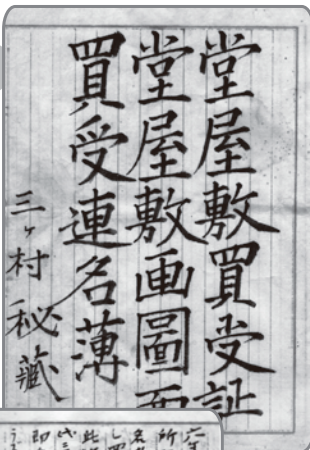 堂屋敷買受証
堂屋敷画圖面
買受連名薄
三ヶ村秘藏